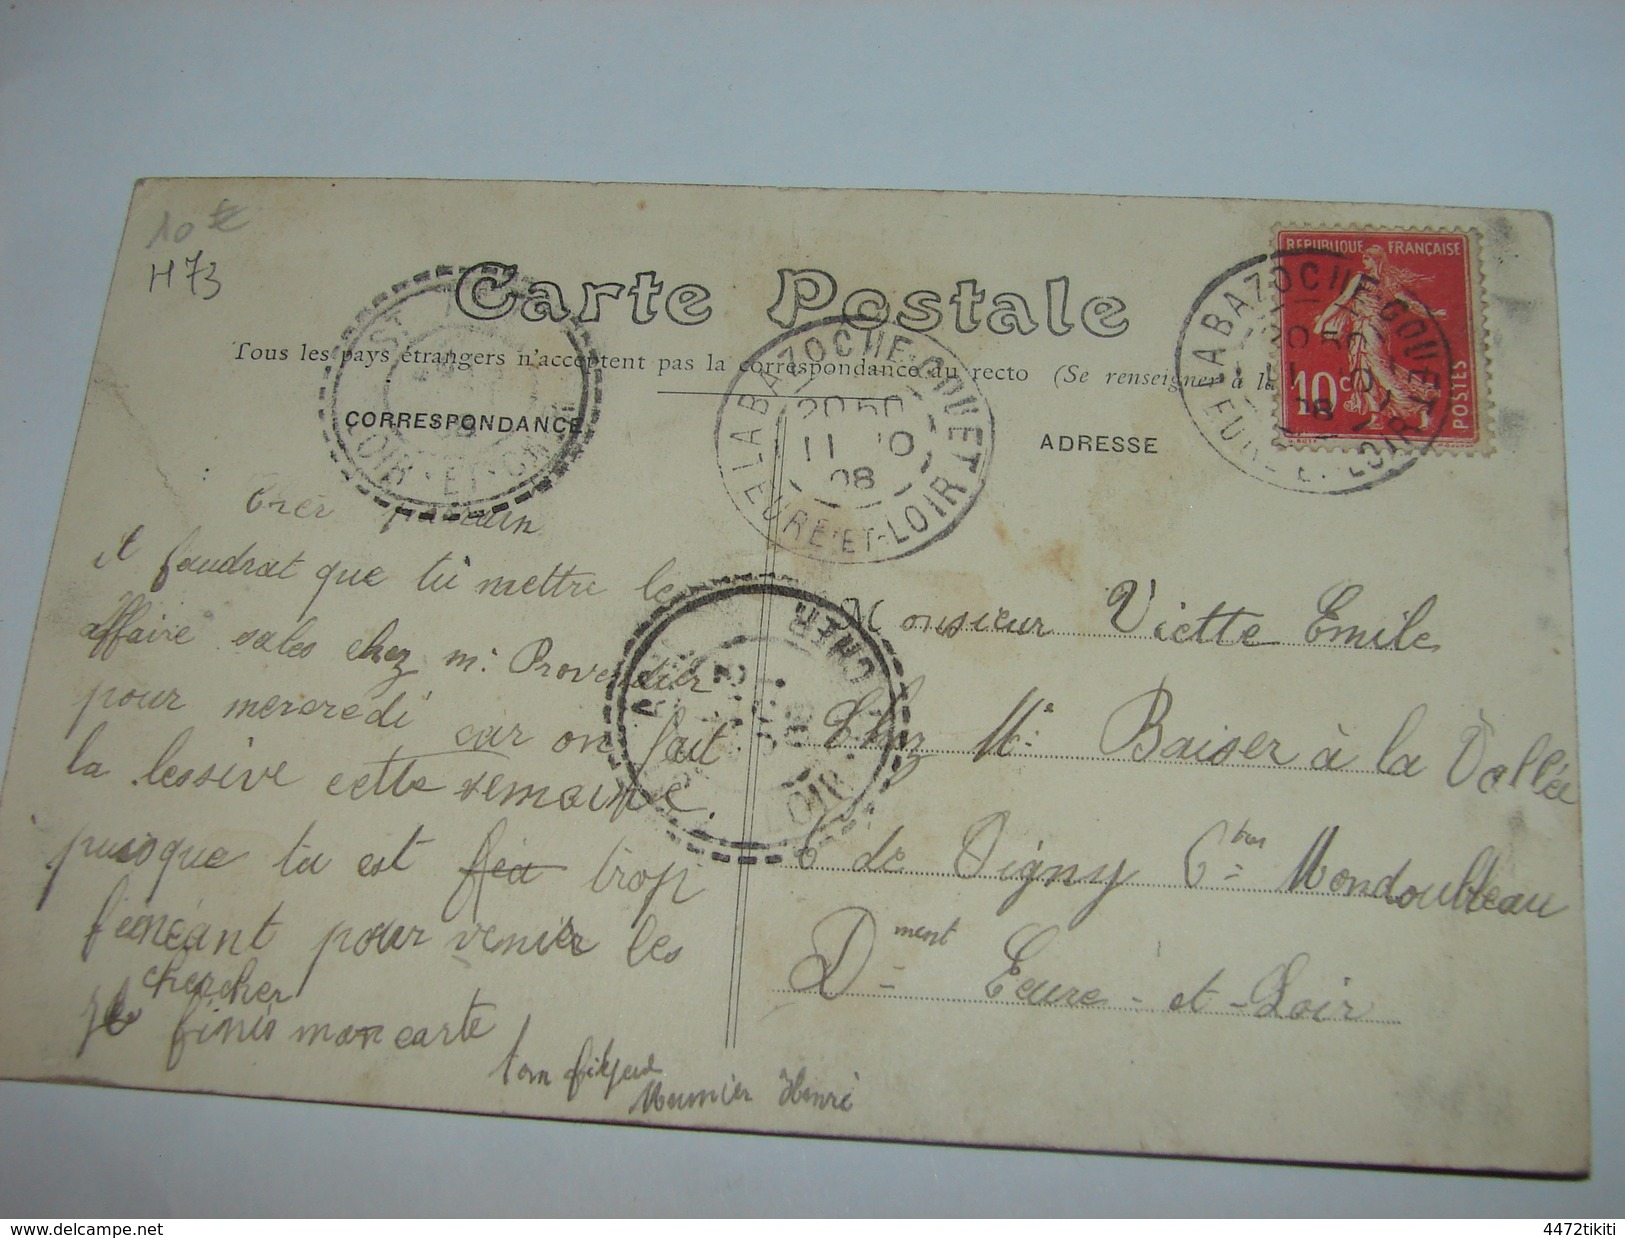 10 €
H 73
Carte Postale
Tous les pays étrangers n'acceptent pas la correspondance au recto (Se renseigner à la
CORRESPONDANCE
ADRESSE
REPUBLIQUE FRANÇAISE
10c
POSTES
LABAZOCHE-GOUET
20 50
11 10
08
EURE-ET-LOIR
LABAZOCHE-GOUET
08
ST.
LOIR-ET-CHER
LOIR
CHER
Cher
il faudrat que tu mettre les
affaire sales chez m. Provendier
pour mercredi car on fait
la lessive cette semaine.
puisque tu est trop
feneant pour venir les
chercher
je finis mon carte
ton
Meunier Henri
Monsieur Viette Emile
Chez Mr Baiser à la Vallée
de Vigny Cne Mondoubleau
Dment Eeure-et-Loir
delcampe.net
4472tikiti